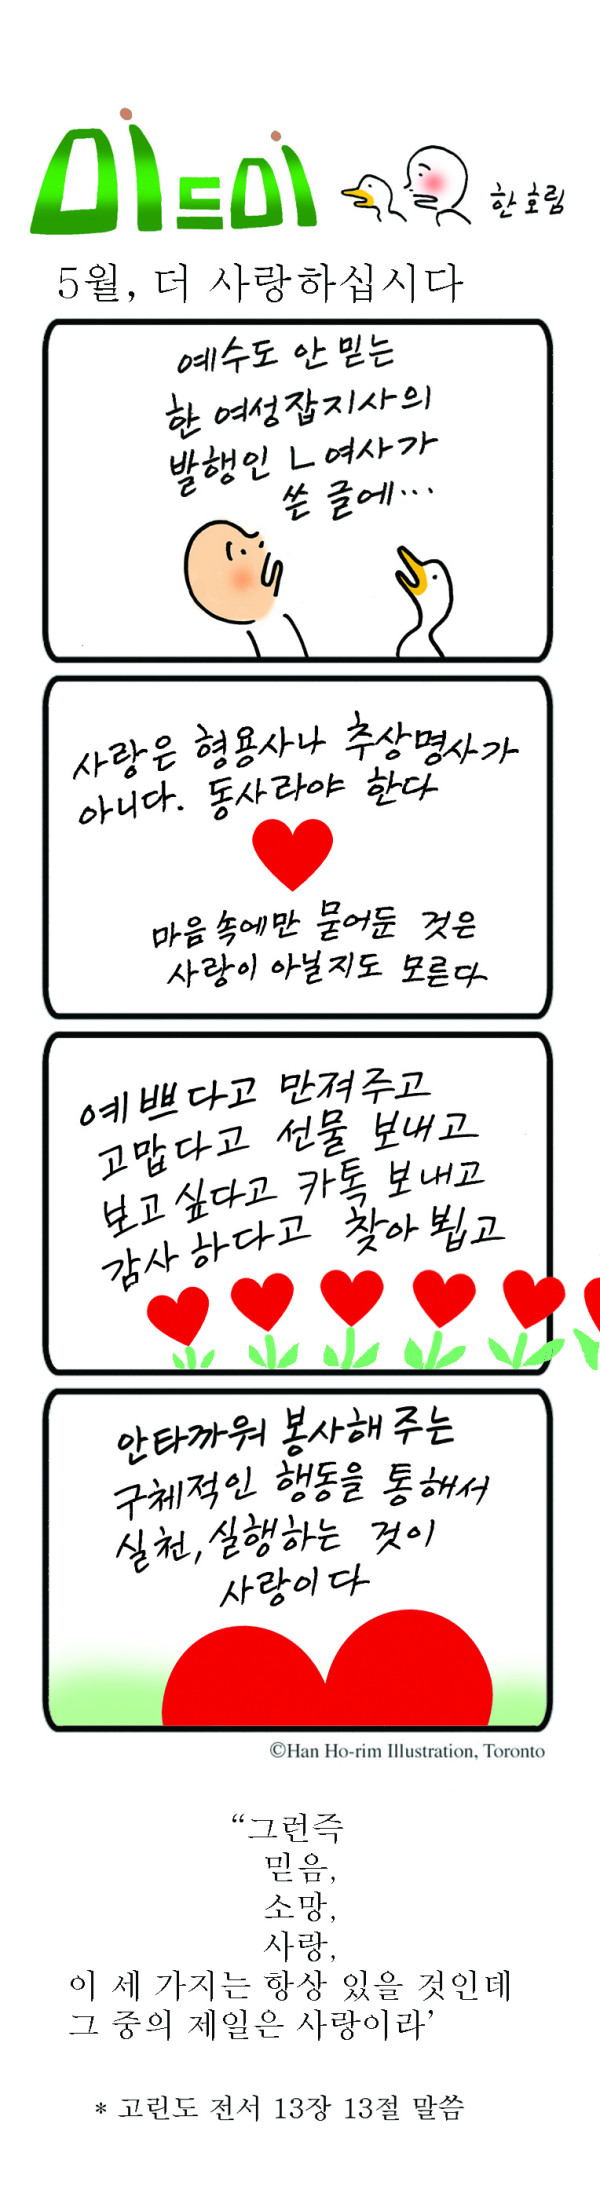 미드미
한 호림
5월, 더 사랑하십시다
예수도 안 믿는
한 여성잡지사의
발행인 ㄴ여사가
쓴 글에···
사랑은 형용사나 추상명사가
아니다. 동사라야 한다
마음속에만 묻어둔 것은
사랑이 아닐지도 모른다
예쁘다고 만져주고
고맙다고 선물 보내고
보고싶다고 카톡 보내고
감사하다고 찾아뵙고
안타까워 봉사해 주는
구체적인 행동을 통해서
실천, 실행하는 것이
사랑이다
©Han Ho-rim Illustration, Toronto
“그런즉
믿음,
소망,
사랑,
이 세 가지는 항상 있을 것인데
그 중의 제일은 사랑이라’
* 고린도 전서 13장 13절 말씀